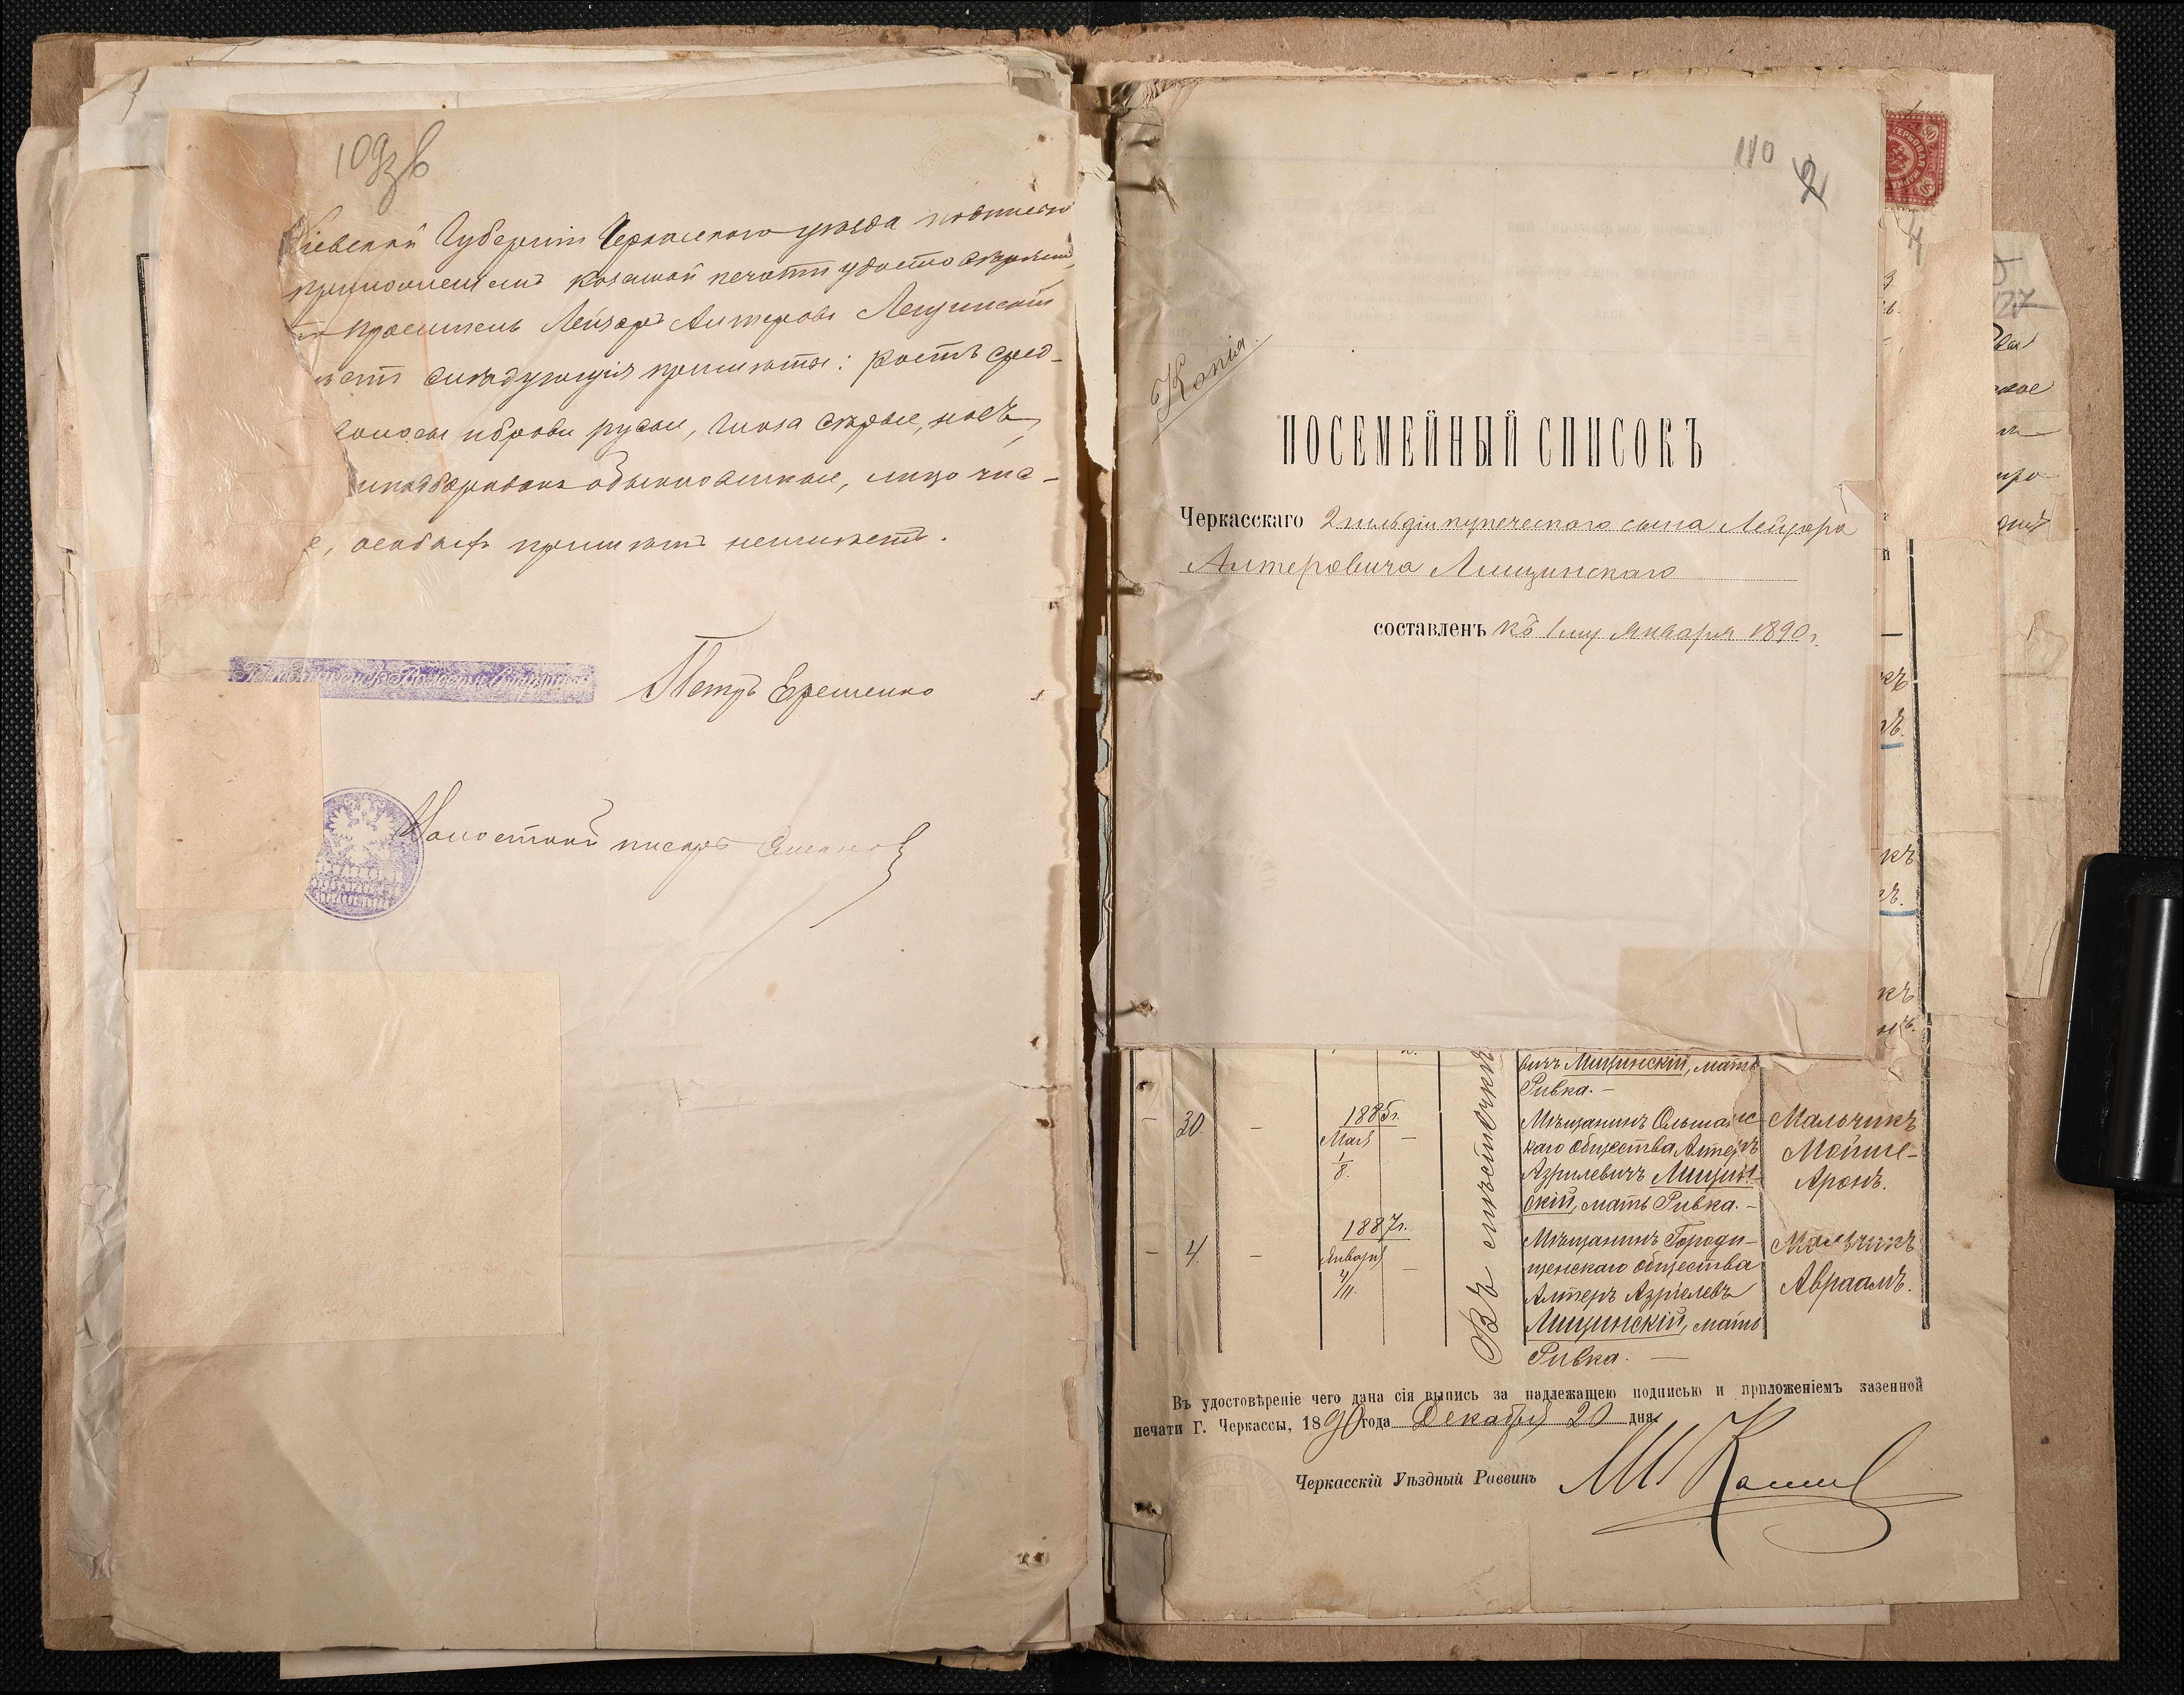 109зв
Кіевской Губерніи Черкасского уѣзда подписью
приложеніемъ казенной печати удостовѣряетъ,
проситель Лейзоръ Алтеровъ Лещинскій
имѣетъ слѣдующія примѣты: ростъ сред-
волосы и брови русые, глаза сѣрые, носъ,
и подбородокъ обыкновенные, лицо чис-
особыхъ примѣтъ неимѣетъ.
Петръ Еременко
Волостной писарь
110
2
Копія.
ПОСЕМЕЙНЫЙ СПИСОКЪ
Черкасскаго 2 гильдіи купеческаго сына Лейзора
Алтеровича Лищинскаго
составленъ къ 1му Января 1890 г.
4
вичъ Лищинскій, мать
Ривка. —
— 30. — 1885 г. Мая 1/8. — Мѣщанинъ Ольшанс
каго общества Алтеръ
Азрилевичъ Лищин-
скій, мать Ривка. —
Мальчикъ
Мойше-
Аронъ.
— 4. — 1887 г. Января 4/11. — Мѣщанинъ Городи-
щенскаго общества
Алтеръ Азріелевъ
Лищинскій, мать
Ривка. —
Мальчикъ
Авраамъ.
Въ мѣстечкѣ
Въ удостовѣреніе чего дана сія выпись за надлежащею подписью и приложеніемъ казенной
печати Г. Черкассы, 1890 года Декабря 20 дня.
Черкасскій Уѣздный Раввинъ